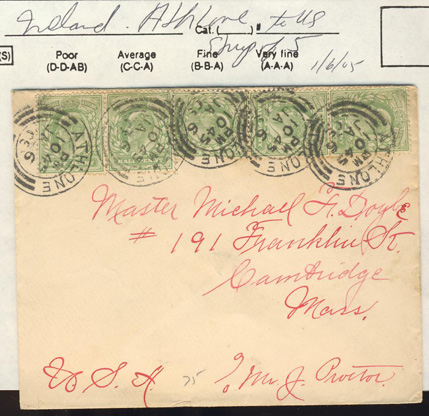 Ireland. Athlone to US
Cat. ( ) #
Strip of 5
(S) Poor Average Fine Very fine
(D-D-AB) (C-C-A) (B-B-A) (A-A-A) 1/6/05
ATHLONE ATHLONE ATHLONE ATHLONE ATHLONE
Master Michael F. Doyle
# 191 Franklin St.
Cambridge
Mass.
U. S. A. 75 c/o Mr. J. Proctor.